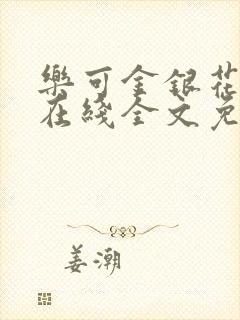 樂可金銀花
在綫全文免
姜潮